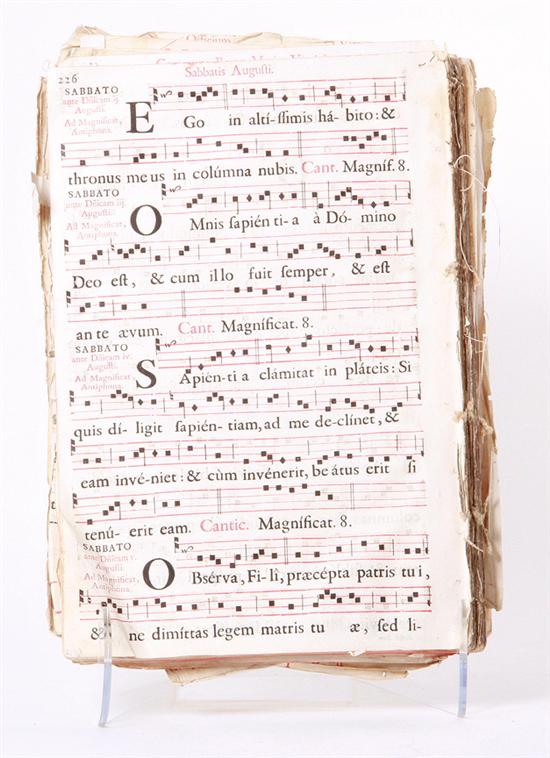 Officium
226
Sabbatis Augusti.
SABBATO
ante Dñicam ij.
Augusti.
Ad Magnificat,
Antiphona.
EGo in altí-ſſimis há-bito: &
thronus meus in colúmna nubis. Cant. Magníf. 8.
SABBATO
ante Dñicam iij.
Augusti.
Ad Magnificat,
Antiphona.
OMnis ſapién ti-a à Dó-mino
Deo eſt, & cum illo fuit ſemper, & eſt
ante ævum. Cant. Magníficat. 8.
SABBATO
ante Dñicam iv.
Augusti.
Ad Magnificat,
Antiphona.
SApién-ti a clámitat in pláteis: Si
quis dí-ligit ſapién-tiam, ad me de-clínet, &
eam invé-niet: & cùm invénerit, be átus erit ſi
tenú-erit eam. Cantic. Magníficat. 8.
SABBATO
ante Dñicam v.
Augusti.
Ad Magnificat,
Antiphona.
OBſérva, Fi-lî, præcépta patris tui,
& ne dimíttas legem matris tu æ, ſed li-